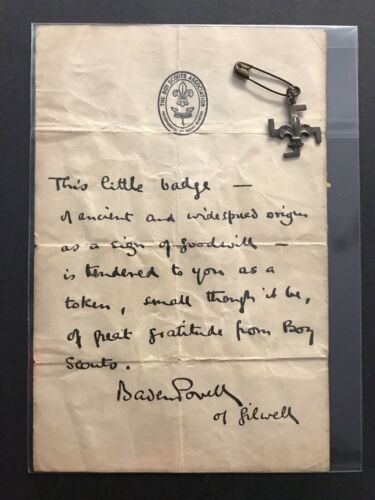 THE BOY SCOUTS ASSOCIATION
This little badge —
of ancient and widespread origin
as a sign of goodwill —
is tendered to you as a
token, small though it be,
of great gratitude from Boy
Scouts.
Baden Powell
of Gilwell